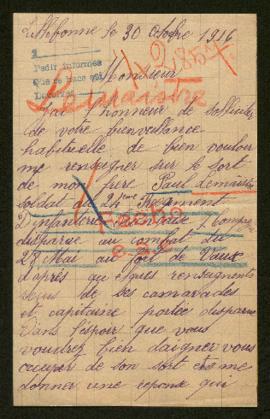 Lillebonne le 30 Octobre 1916
2
Pedir informes
que se hace qui
Monsieur
Lemaistre
J'ai l'honneur de solliciter
de votre bienveillance
habituelle de bien vouloir
me renseigner sur le sort
de mon frère Paul Lemaistre
soldat au 24ème Régiment
D'infanterie
Fecho
disparue au combat du
28 Mai au fort de Vaux
d'après
renseignements
reçus de ses camarades
et capitaine portée disparue
Dans l'espoir que vous
voudrez bien daigner vous
occuper de son sort et me
donner une reponse qui